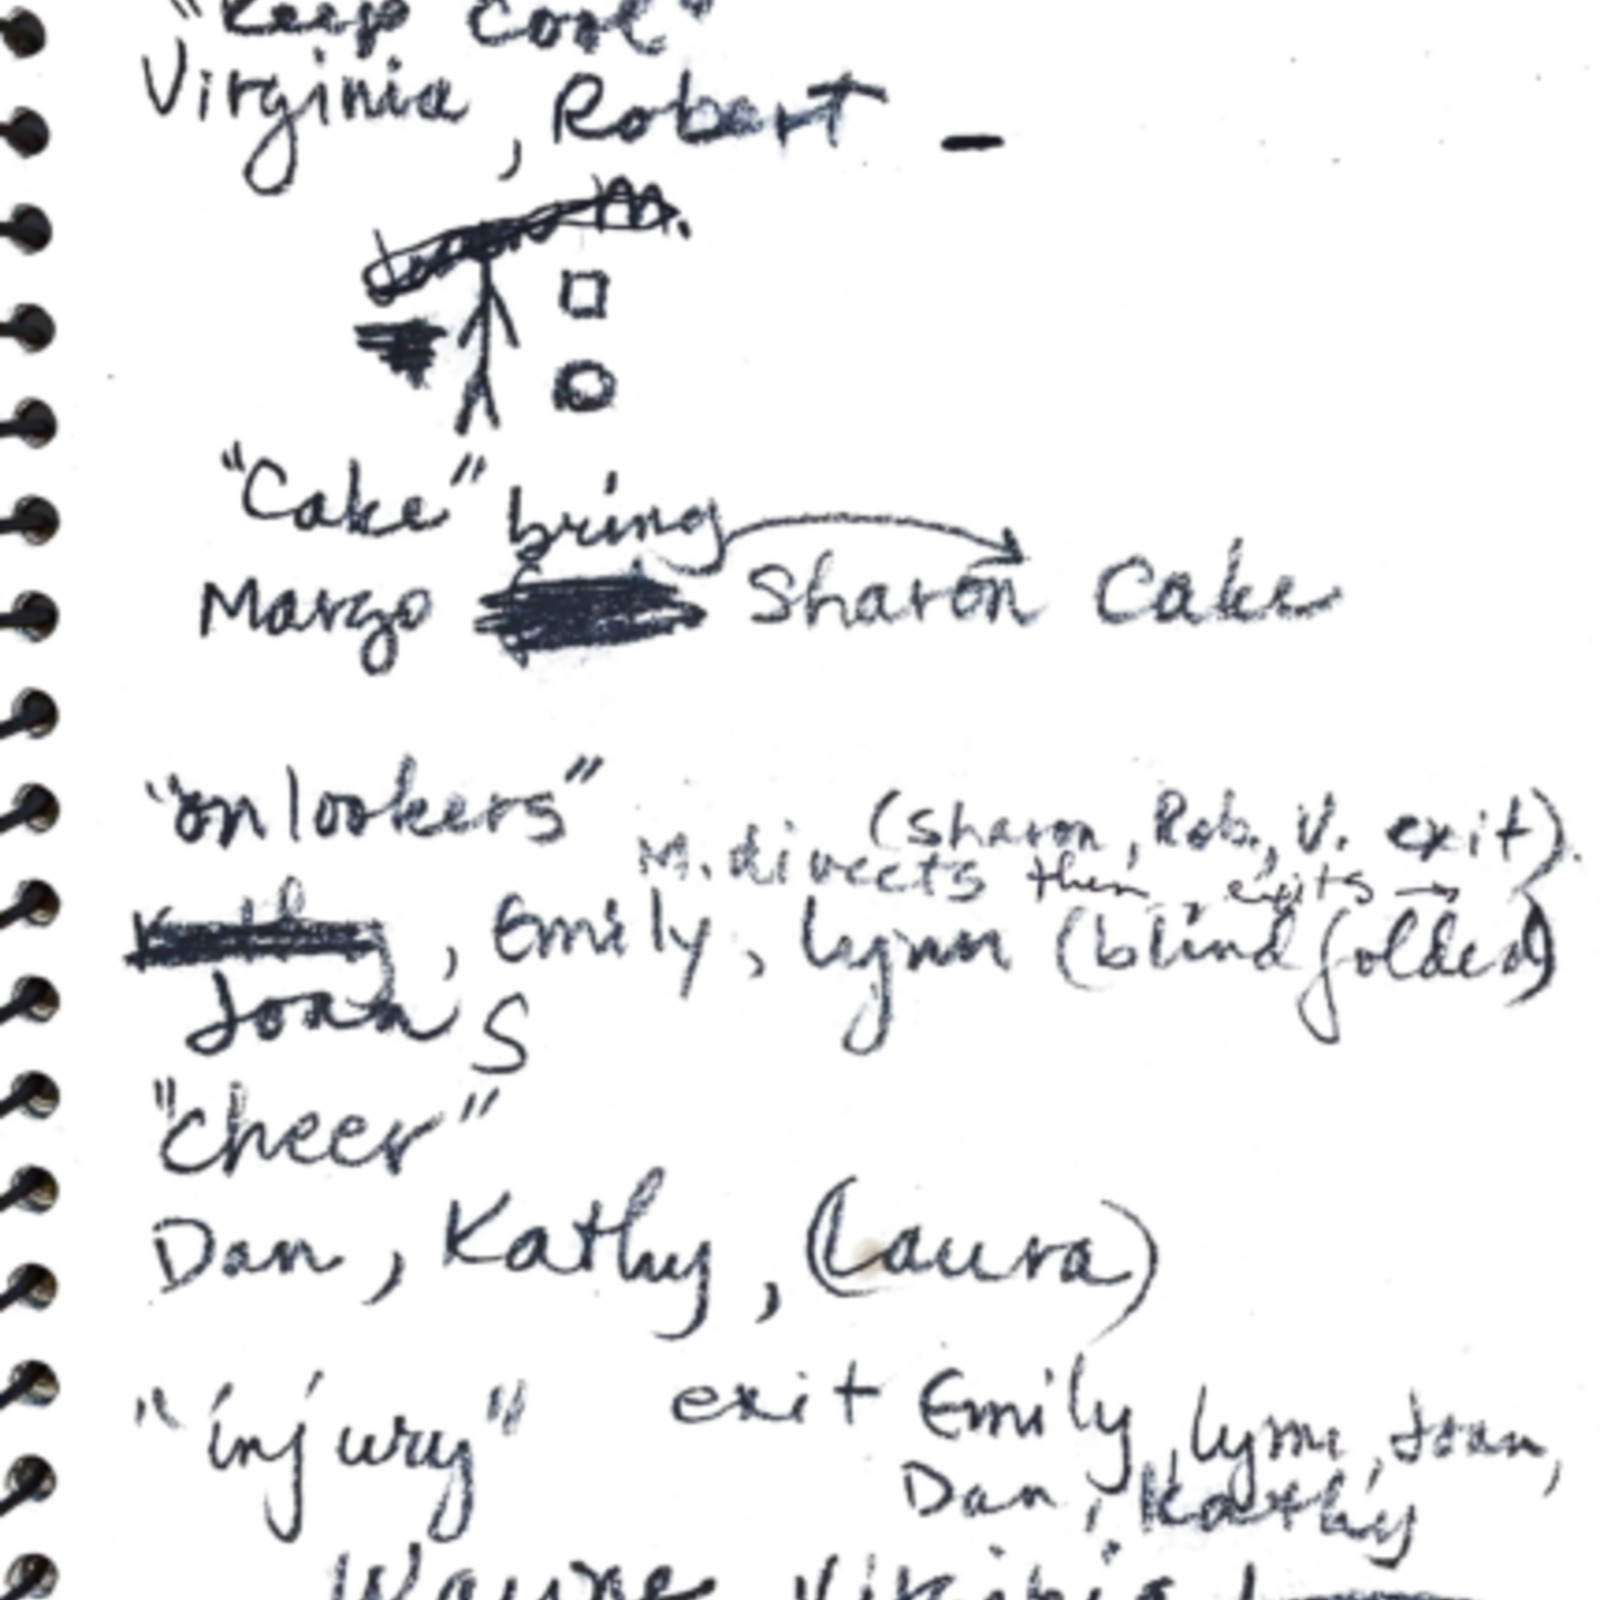 "Keep Cool"
Virginia, Robert –
"Cake" bring
Margo Sharon Cake
"onlookers"
(Sharon, Rob., V. exit).
M. directs then exits →
, Emily, Lynn (blindfolded)
Joan S
"Cheer"
Dan, Kathy, (Laura)
"injury"
exit Emily, Lynn, Joan,
Dan, Kathy
Wayne